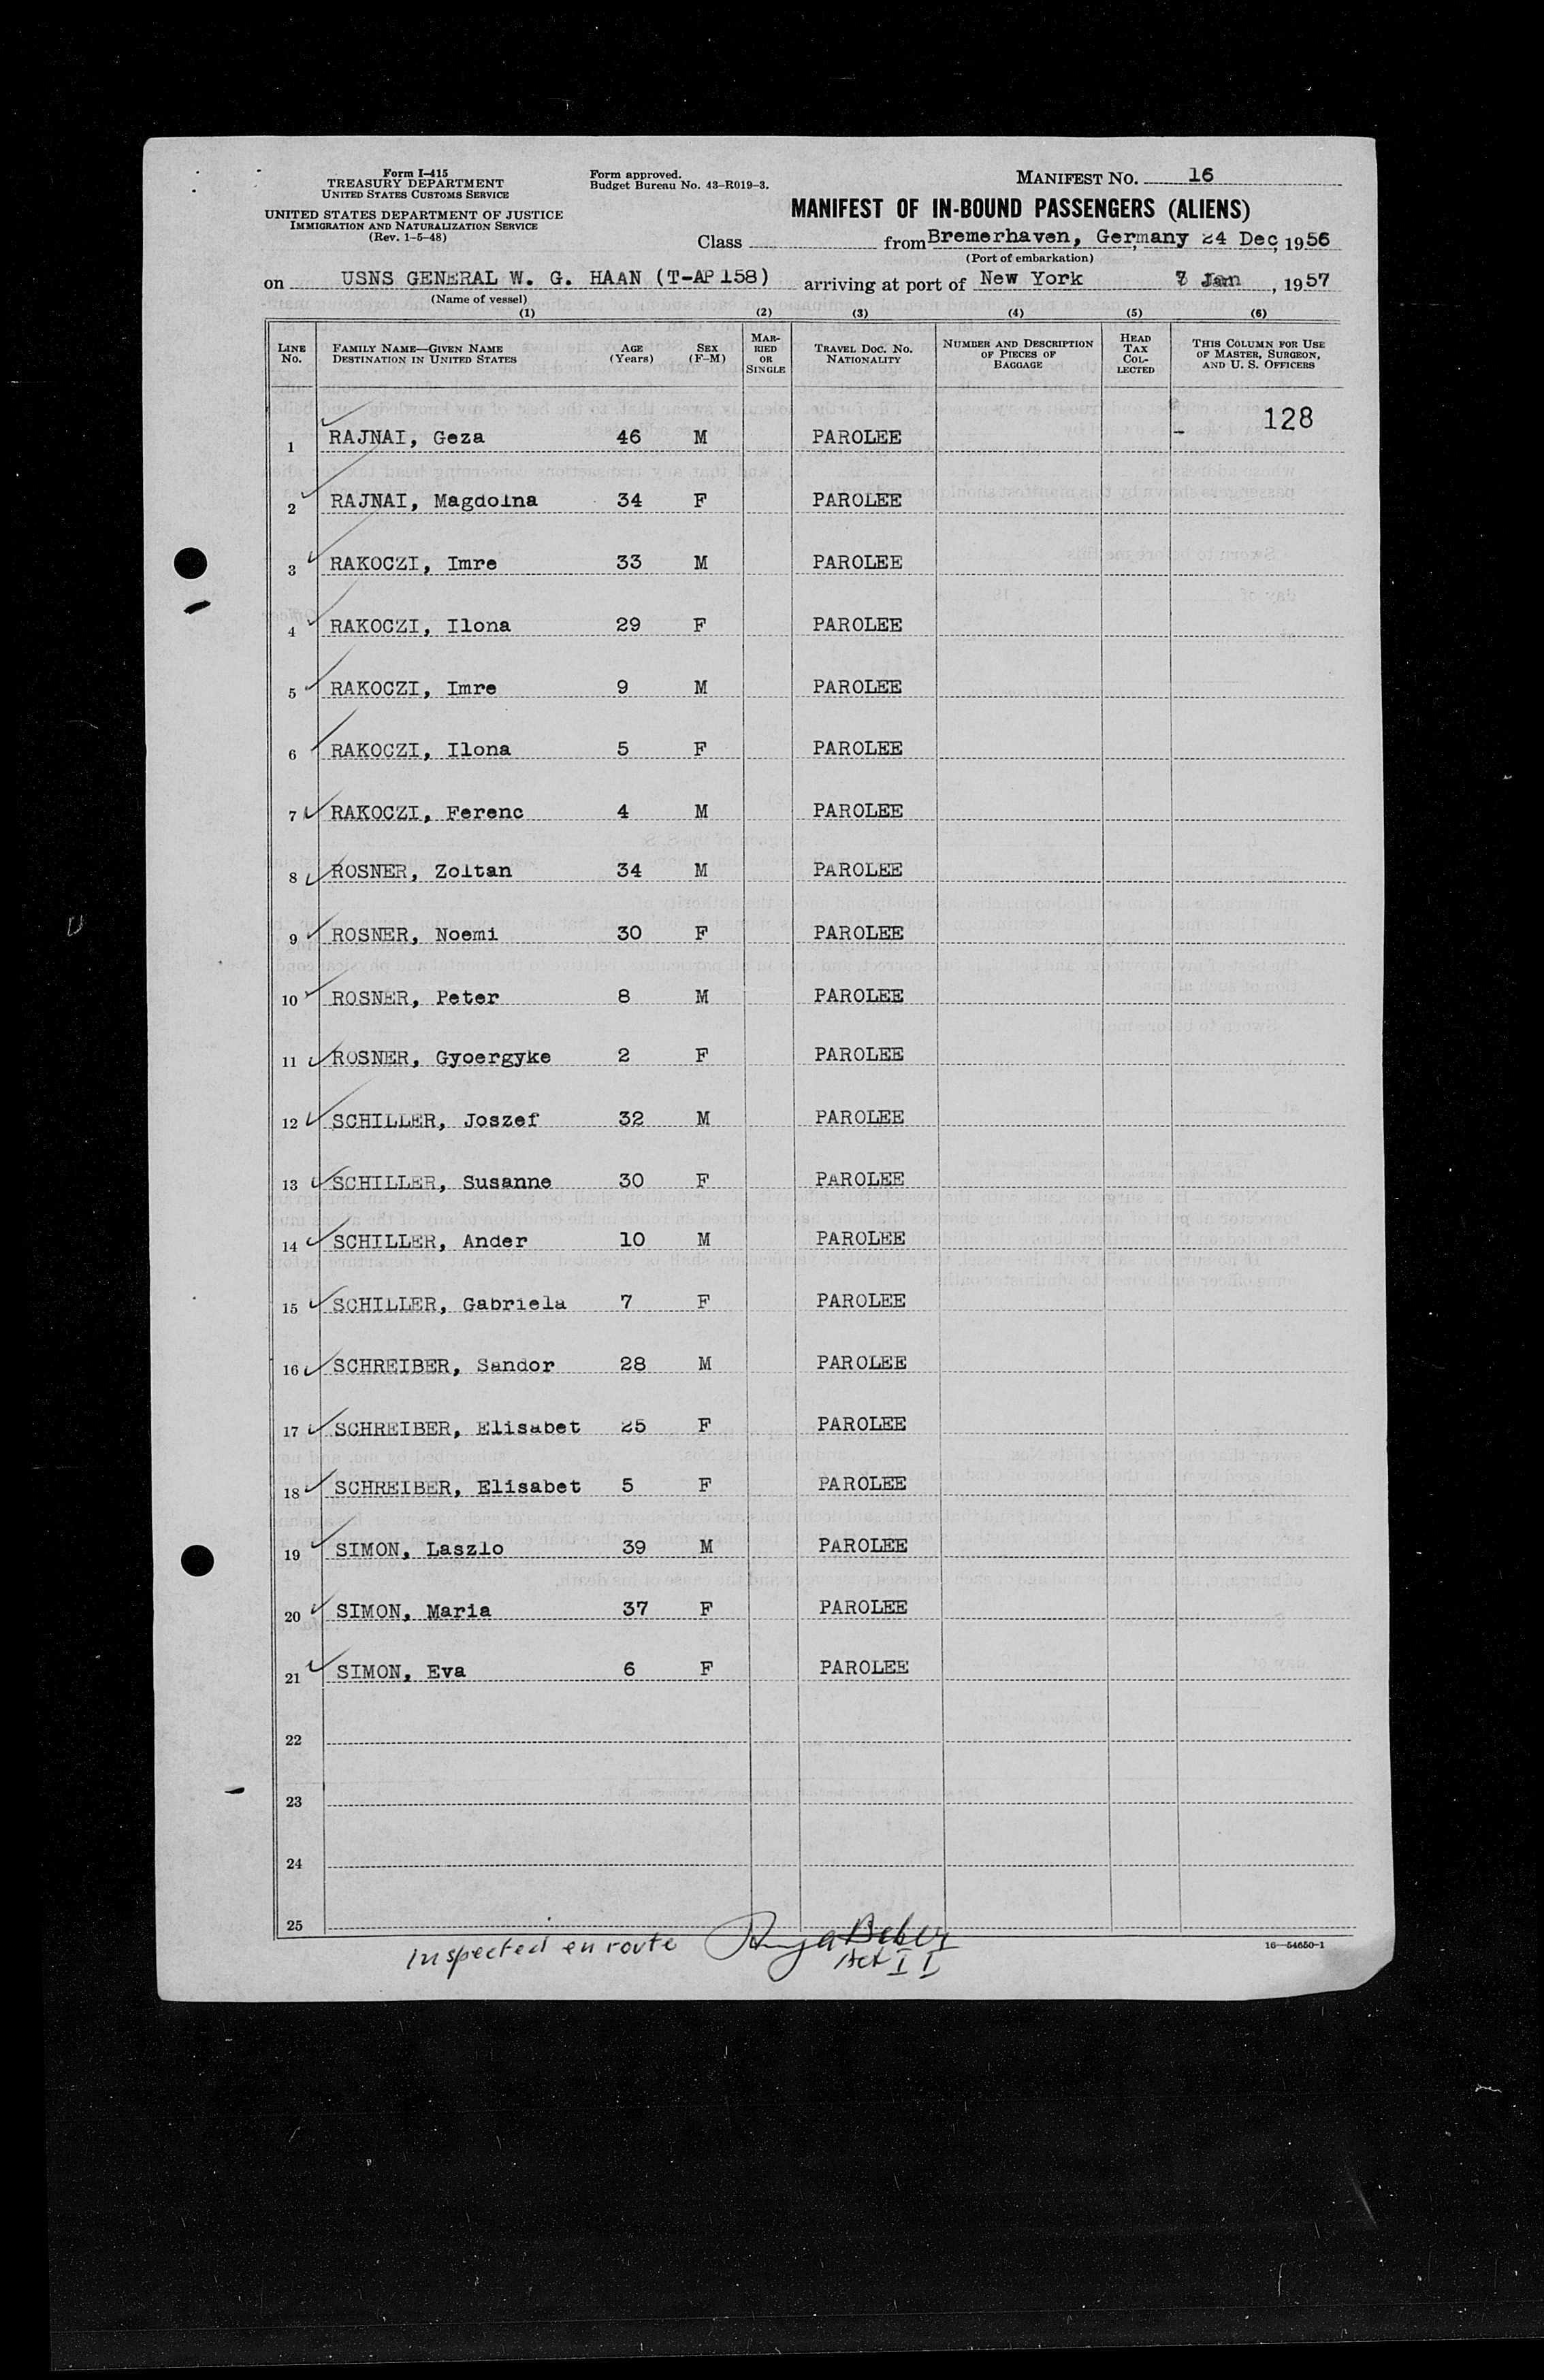 Form I-415
TREASURY DEPARTMENT
UNITED STATES CUSTOMS SERVICE
UNITED STATES DEPARTMENT OF JUSTICE
IMMIGRATION AND NATURALIZATION SERVICE
(Rev. 1-5-48)
Form approved.
Budget Bureau No. 43-R019-3.
MANIFEST NO. 16
MANIFEST OF IN-BOUND PASSENGERS (ALIENS)
Class from Bremerhaven, Germany 24 Dec, 1956
(Port of embarkation)
on USNS GENERAL W. G. HAAN (T-AP 158) arriving at port of New York 7 Jan, 1957
(Name of vessel)
(1) (2) (3) (4) (5) (6)
LINE NO. FAMILY NAME—GIVEN NAME DESTINATION IN UNITED STATES AGE (Years) SEX (F-M) MARRIED OR SINGLE TRAVEL DOC. NO. NATIONALITY NUMBER AND DESCRIPTION OF PIECES OF BAGGAGE HEAD TAX COLLECTED THIS COLUMN FOR USE OF MASTER, SURGEON, AND U. S. OFFICERS
128
1 RAJNAI, Geza 46 M PAROLEE
2 RAJNAI, Magdolna 34 F PAROLEE
3 RAKOCZI, Imre 33 M PAROLEE
4 RAKOCZI, Ilona 29 F PAROLEE
5 RAKOCZI, Imre 9 M PAROLEE
6 RAKOCZI, Ilona 5 F PAROLEE
7 RAKOCZI, Ferenc 4 M PAROLEE
8 ROSNER, Zoltan 34 M PAROLEE
9 ROSNER, Noemi 30 F PAROLEE
10 ROSNER, Peter 8 M PAROLEE
11 ROSNER, Gyoergyke 2 F PAROLEE
12 SCHILLER, Joszef 32 M PAROLEE
13 SCHILLER, Susanne 30 F PAROLEE
14 SCHILLER, Ander 10 M PAROLEE
15 SCHILLER, Gabriela 7 F PAROLEE
16 SCHREIBER, Sandor 28 M PAROLEE
17 SCHREIBER, Elisabet 25 F PAROLEE
18 SCHREIBER, Elisabet 5 F PAROLEE
19 SIMON, Laszlo 39 M PAROLEE
20 SIMON, Maria 37 F PAROLEE
21 SIMON, Eva 6 F PAROLEE
22
23
24
25
Inspected en route
16—54650-1